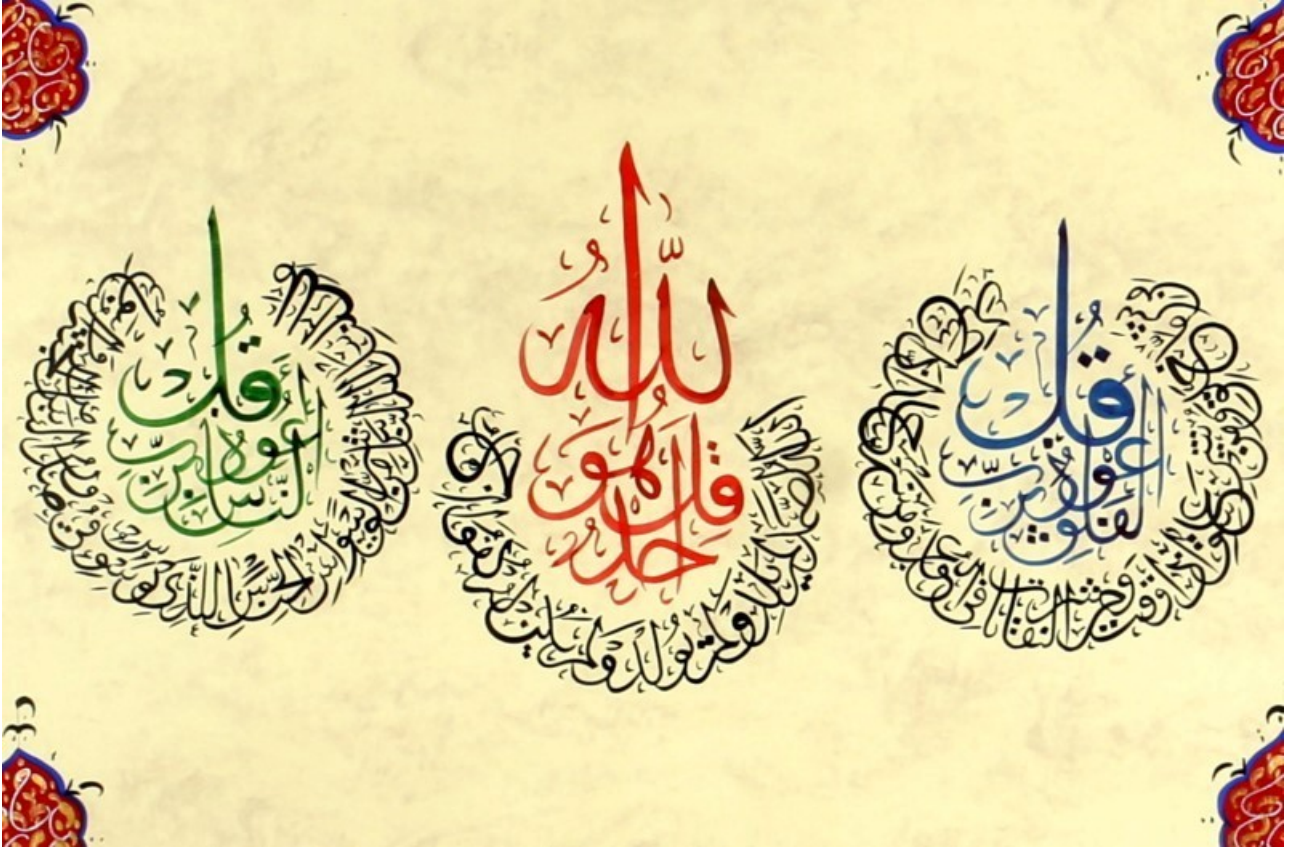 قل أعوذ برب الفلق
من شر ما خلق ومن شر غاسق إذا وقب ومن شر النفاثات في العقد ومن شر حاسد إذا حسد
قل هو الله أحد
الله الصمد لم يلد ولم يولد ولم يكن له كفوا أحد
قل أعوذ برب الناس
ملك الناس إله الناس من شر الوسواس الخناس الذي يوسوس في صدور الناس من الجنة والناس